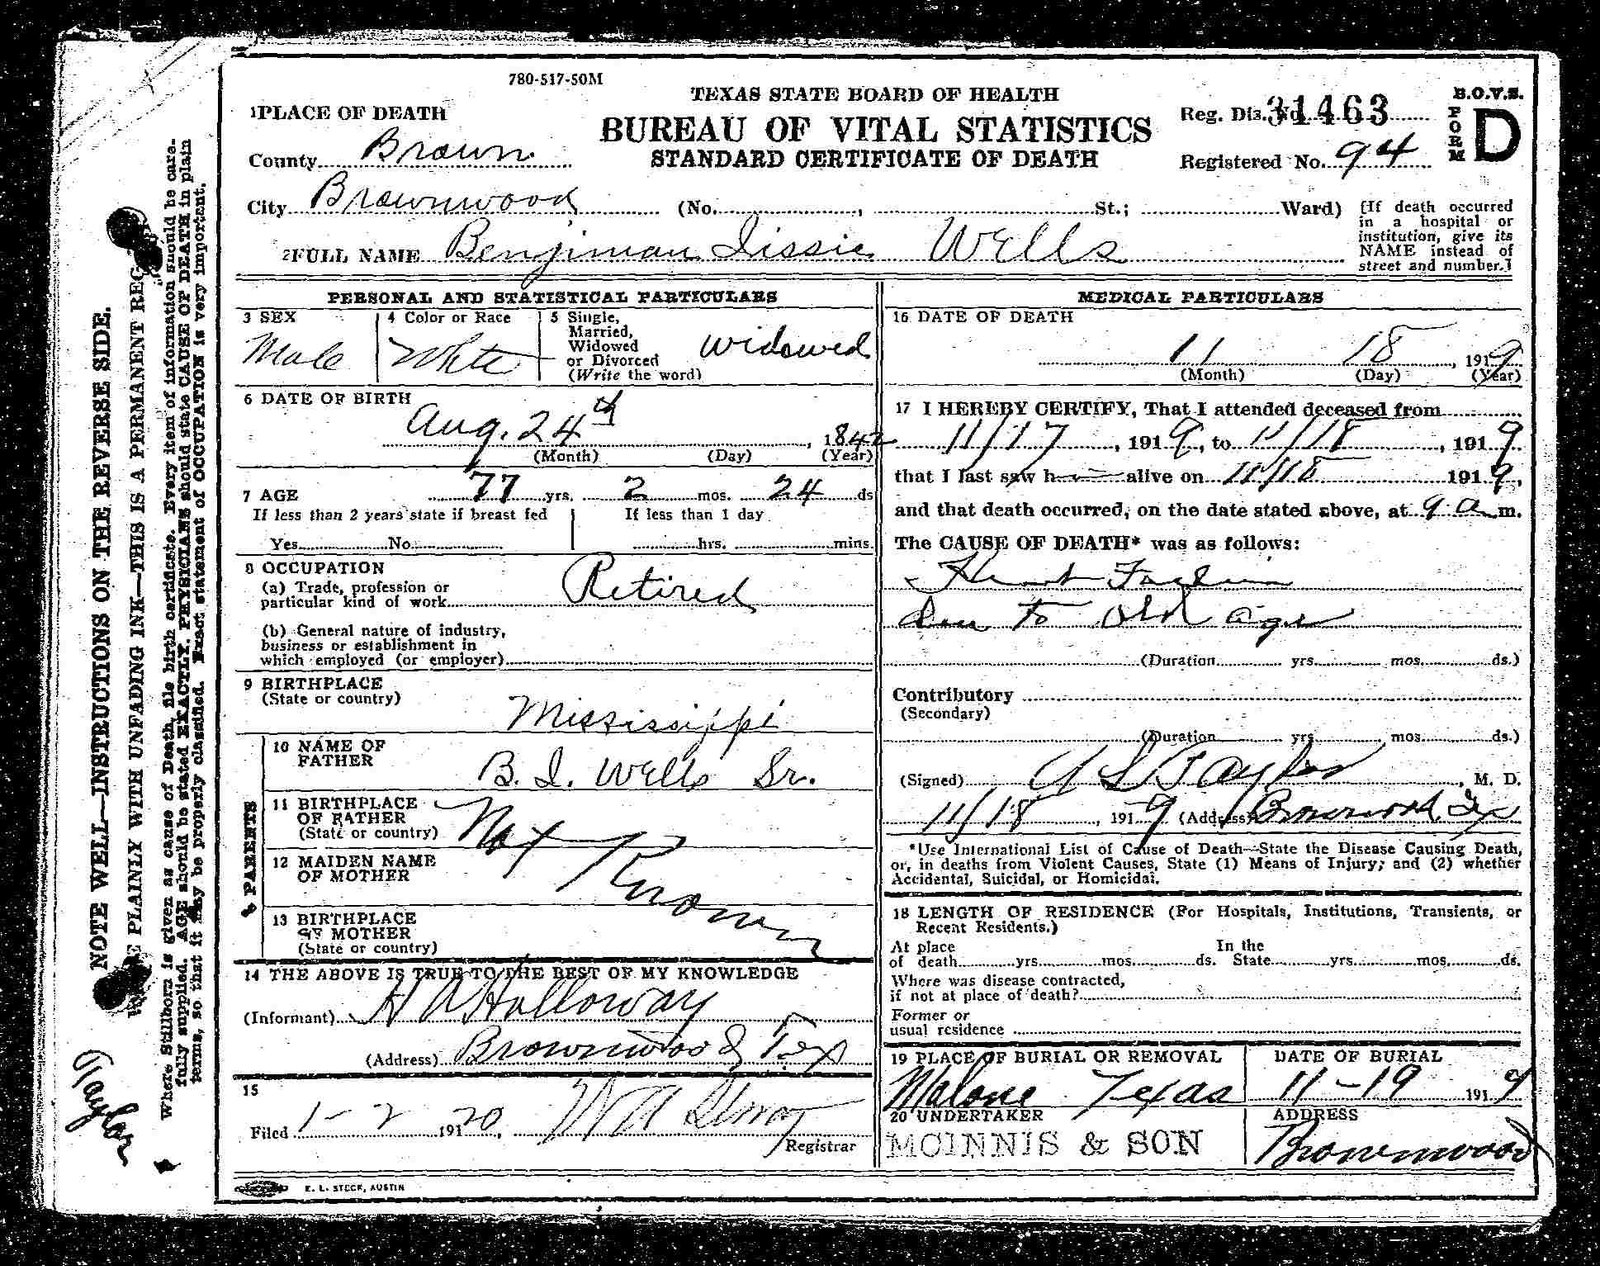 780-517-50M
TEXAS STATE BOARD OF HEALTH
BUREAU OF VITAL STATISTICS
STANDARD CERTIFICATE OF DEATH
Reg. Dis. No. 31463
Registered No. 94
B.O.V.S.
FORM D
1 PLACE OF DEATH
County Brown
City Brownwood (No. , St.; Ward)
[If death occurred
in a hospital or
institution, give its
NAME instead of
street and number.]
2 FULL NAME Benjiman Issie Wells
PERSONAL AND STATISTICAL PARTICULARS
3 SEX
Male
4 Color or Race
White
5 Single,
Married,
Widowed
or Divorced
(Write the word)
Widowed
6 DATE OF BIRTH
Aug. 24th, 1842
(Month) (Day) (Year)
7 AGE 77 yrs. 2 mos. 24 ds
If less than 2 years state if breast fed
Yes No
If less than 1 day
hrs. mins.
8 OCCUPATION
(a) Trade, profession or
particular kind of work Retired
(b) General nature of industry,
business or establishment in
which employed (or employer)
9 BIRTHPLACE
(State or country)
Mississippi
PARENTS
10 NAME OF
FATHER
B. I. Wells Sr.
11 BIRTHPLACE
OF FATHER
(State or country)
Not Known
12 MAIDEN NAME
OF MOTHER
13 BIRTHPLACE
OF MOTHER
(State or country)
14 THE ABOVE IS TRUE TO THE BEST OF MY KNOWLEDGE
(Informant) H A Holloway
(Address) Brownwood Tex
15
Filed 1-2 1920,
Registrar
MEDICAL PARTICULARS
16 DATE OF DEATH
11 18, 1919
(Month) (Day) (Year)
17 I HEREBY CERTIFY, That I attended deceased from
11/17, 1919, to 11/18, 1919
that I last saw h alive on 11/18 1919,
and that death occurred, on the date stated above, at 9 a m.
The CAUSE OF DEATH* was as follows:
Heart Failure
Due to Old age
(Duration yrs. mos. ds.)
Contributory
(Secondary)
(Duration yrs. mos. ds.)
(Signed) Taylor, M. D.
11/18, 1919 (Address) Brownwood, Tex
*Use International List of Cause of Death—State the Disease Causing Death,
or, in deaths from Violent Causes, State (1) Means of Injury; and (2) whether
Accidental, Suicidal, or Homicidal.
18 LENGTH OF RESIDENCE (For Hospitals, Institutions, Transients, or
Recent Residents.)
At place
of death yrs. mos. ds.
In the
State yrs. mos. ds.
Where was disease contracted,
if not at place of death?
Former or
usual residence
19 PLACE OF BURIAL OR REMOVAL
Malone Texas
DATE OF BURIAL
11-19 1919
20 UNDERTAKER
MCINNIS & SON
ADDRESS
Brownwood
E. L. STECK, AUSTIN
NOTE WELL—INSTRUCTIONS ON THE REVERSE SIDE.
PLAINLY WITH UNFADING INK—THIS IS A PERMANENT REC
Where Stillborn is given as cause of Death, file birth certificate. Every item of information should be care-
fully supplied. AGE should be stated EXACTLY. PHYSICIANS should state CAUSE OF DEATH in plain
terms, so that it may be properly classified. Exact statement of OCCUPATION is very important.
Taylor